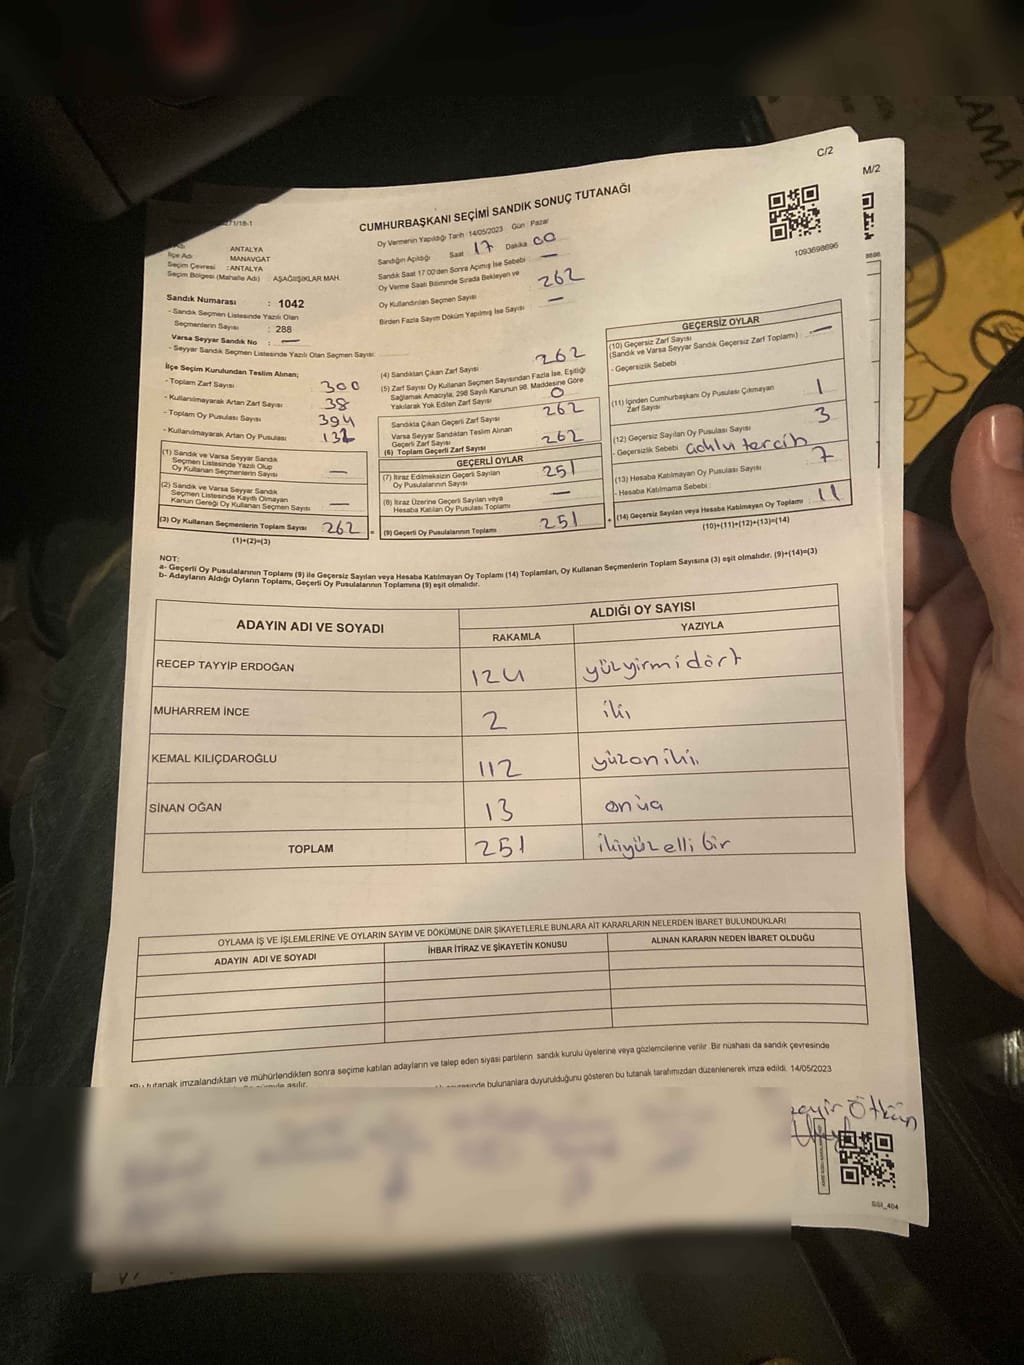 C/2
M/2
CUMHURBAŞKANI SEÇİMİ SANDIK SONUÇ TUTANAĞI
Oy Vermenin Yapıldığı Tarih :14/05/2023 Gün : Pazar
Sandığın Açıldığı Saat 17 Dakika 00
Sandık Saat 17:00'den Sonra Açılmış İse Sebebi : —
Oy Verme Saati Bitiminde Sırada Bekleyen ve
Oy Kullandırılan Seçmen Sayısı 262
Birden Fazla Sayım Döküm Yapılmış İse Sayısı —
1093698696
: ANTALYA
İlçe Adı : MANAVGAT
Seçim Çevresi : ANTALYA
Seçim Bölgesi (Mahalle Adı) : AŞAĞIIŞIKLAR MAH.
Sandık Numarası : 1042
- Sandık Seçmen Listesinde Yazılı Olan
Seçmenlerin Sayısı : 288
Varsa Seyyar Sandık No : —
- Seyyar Sandık Seçmen Listesinde Yazılı Olan Seçmen Sayısı:
İlçe Seçim Kurulundan Teslim Alınan;
- Toplam Zarf Sayısı 300
- Kullanılmayarak Artan Zarf Sayısı 38
- Toplam Oy Pusulası Sayısı 394
- Kullanılmayarak Artan Oy Pusulası 132
(1) Sandık ve Varsa Seyyar Sandık
Seçmen Listesinde Yazılı Olup
Oy Kullanan Seçmenlerin Sayısı —
(2) Sandık ve Varsa Seyyar Sandık
Seçmen Listesinde Kayıtlı Olmayan
Kanun Gereği Oy Kullanan Seçmen Sayısı —
(3) Oy Kullanan Seçmenlerin Toplam Sayısı 262
(1)+(2)=(3)
(4) Sandıktan Çıkan Zarf Sayısı 262
(5) Zarf Sayısı Oy Kullanan Seçmen Sayısından Fazla İse, Eşitliği
Sağlamak Amacıyla, 298 Sayılı Kanunun 98. Maddesine Göre
Yakılarak Yok Edilen Zarf Sayısı 0
Sandıkta Çıkan Geçerli Zarf Sayısı 262
Varsa Seyyar Sandıktan Teslim Alınan
Geçerli Zarf Sayısı
(6) Toplam Geçerli Zarf Sayısı 262
GEÇERLİ OYLAR
(7) İtiraz Edilmeksizin Geçerli Sayılan
Oy Pusulalarının Sayısı 251
(8) İtiraz Üzerine Geçerli Sayılan veya
Hesaba Katılan Oy Pusulası Toplamı —
(9) Geçerli Oy Pusulalarının Toplamı 251
GEÇERSİZ OYLAR
(10) Geçersiz Zarf Sayısı
(Sandık ve Varsa Seyyar Sandık Geçersiz Zarf Toplamı) : —
- Geçersizlik Sebebi
(11) İçinden Cumhurbaşkanı Oy Pusulası Çıkmayan
Zarf Sayısı 1
(12) Geçersiz Sayılan Oy Pusulası Sayısı 3
- Geçersizlik Sebebi tercih
(13) Hesaba Katılmayan Oy Pusulası Sayısı 7
- Hesaba Katılmama Sebebi :
(14) Geçersiz Sayılan veya Hesaba Katılmayan Oy Toplamı 11
(10)+(11)+(12)+(13)=(14)
NOT:
a- Geçerli Oy Pusulalarının Toplamı (9) ile Geçersiz Sayılan veya Hesaba Katılmayan Oy Toplamı (14) Toplamları, Oy Kullanan Seçmenlerin Toplam Sayısına (3) eşit olmalıdır. (9)+(14)=(3)
b- Adayların Aldığı Oyların Toplamı, Geçerli Oy Pusulalarının Toplamına (9) eşit olmalıdır.
ADAYIN ADI VE SOYADI
ALDIĞI OY SAYISI
RAKAMLA YAZIYLA
RECEP TAYYİP ERDOĞAN 124 yüzyirmidört
MUHARREM İNCE 2 iki
KEMAL KILIÇDAROĞLU 112 yüzoniki
SİNAN OĞAN 13 onüç
TOPLAM 251 ikiyüzelli bir
OYLAMA İŞ VE İŞLEMLERİNE VE OYLARIN SAYIM VE DÖKÜMÜNE DAİR ŞİKAYETLERLE BUNLARA AİT KARARLARIN NELERDEN İBARET BULUNDUKLARI
ADAYIN ADI VE SOYADI İHBAR İTİRAZ VE ŞİKAYETİN KONUSU ALINAN KARARIN NEDEN İBARET OLDUĞU
tutanak imzalandıktan ve mühürlendikten sonra seçime katılan adayların ve talep eden siyasi partilerin sandık kurulu üyelerine veya gözlemcilerine verilir. Bir nüshası da sandık çevresinde
asılır.
bulunanlara duyurulduğunu gösteren bu tutanak tarafımızdan düzenlenerek imza edildi. 14/05/2023
Ötkün